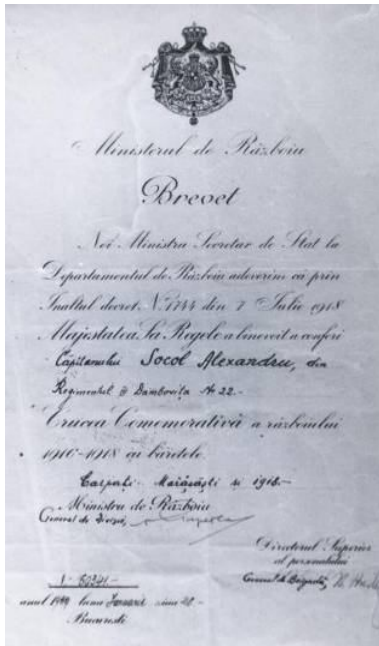 Ministerul de Războiu
Brevet
Noi Ministru Secretar de Stat la
Departamentul de Războiu adeverim că prin
Inaltul decret No. 1744 din 7 Iulie 1918
Majestatea Sa Regele a binevoit a conferi
Căpitanului Socol Alexandru, din
Regimentul Dambovita No 22.-
Crucea Comemorativă a războiului
1916-1918 cu baretele
Carpați Mărășăști si 1918.-
Ministru de Războiu
General de divizie,
Directorul Superior
al personalului
General de Brigadă
anul luna Ianuarie ziua 28-
București